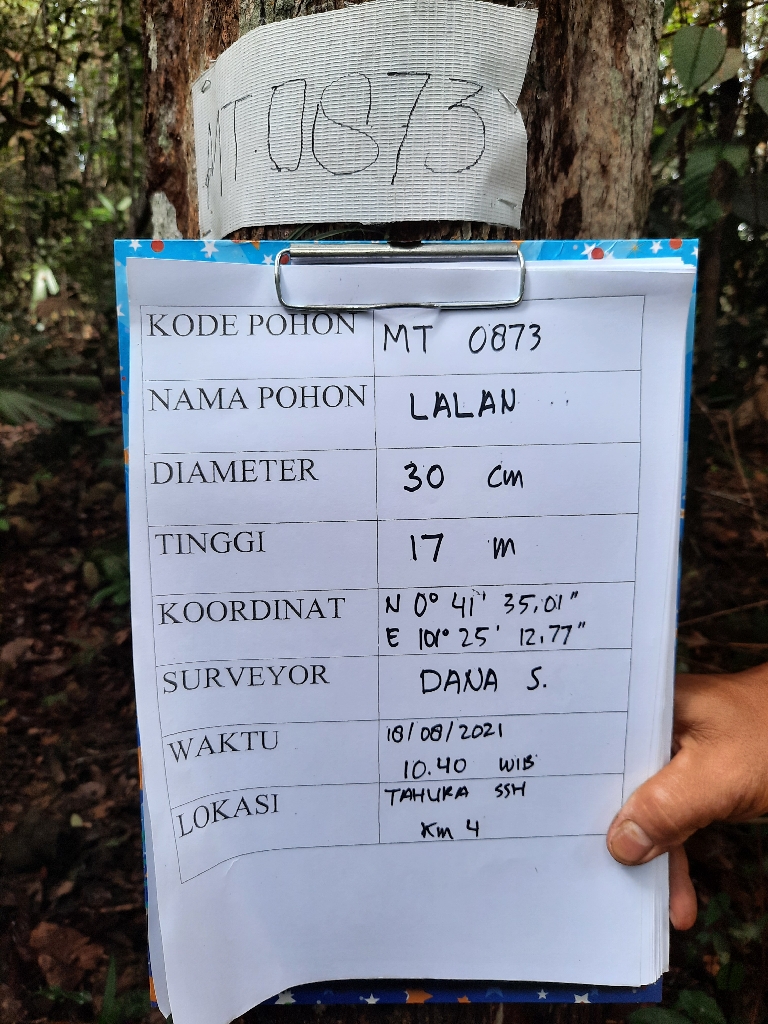 MT.0873
KODE POHON MT 0873
NAMA POHON LALAN
DIAMETER 30 cm
TINGGI 17 m
KOORDINAT N 0° 41' 35,01"
E 101° 25' 12,77"
SURVEYOR DANA S.
WAKTU 18/08/2021
10.40 WIB
LOKASI TAHURA SSH
Km 4